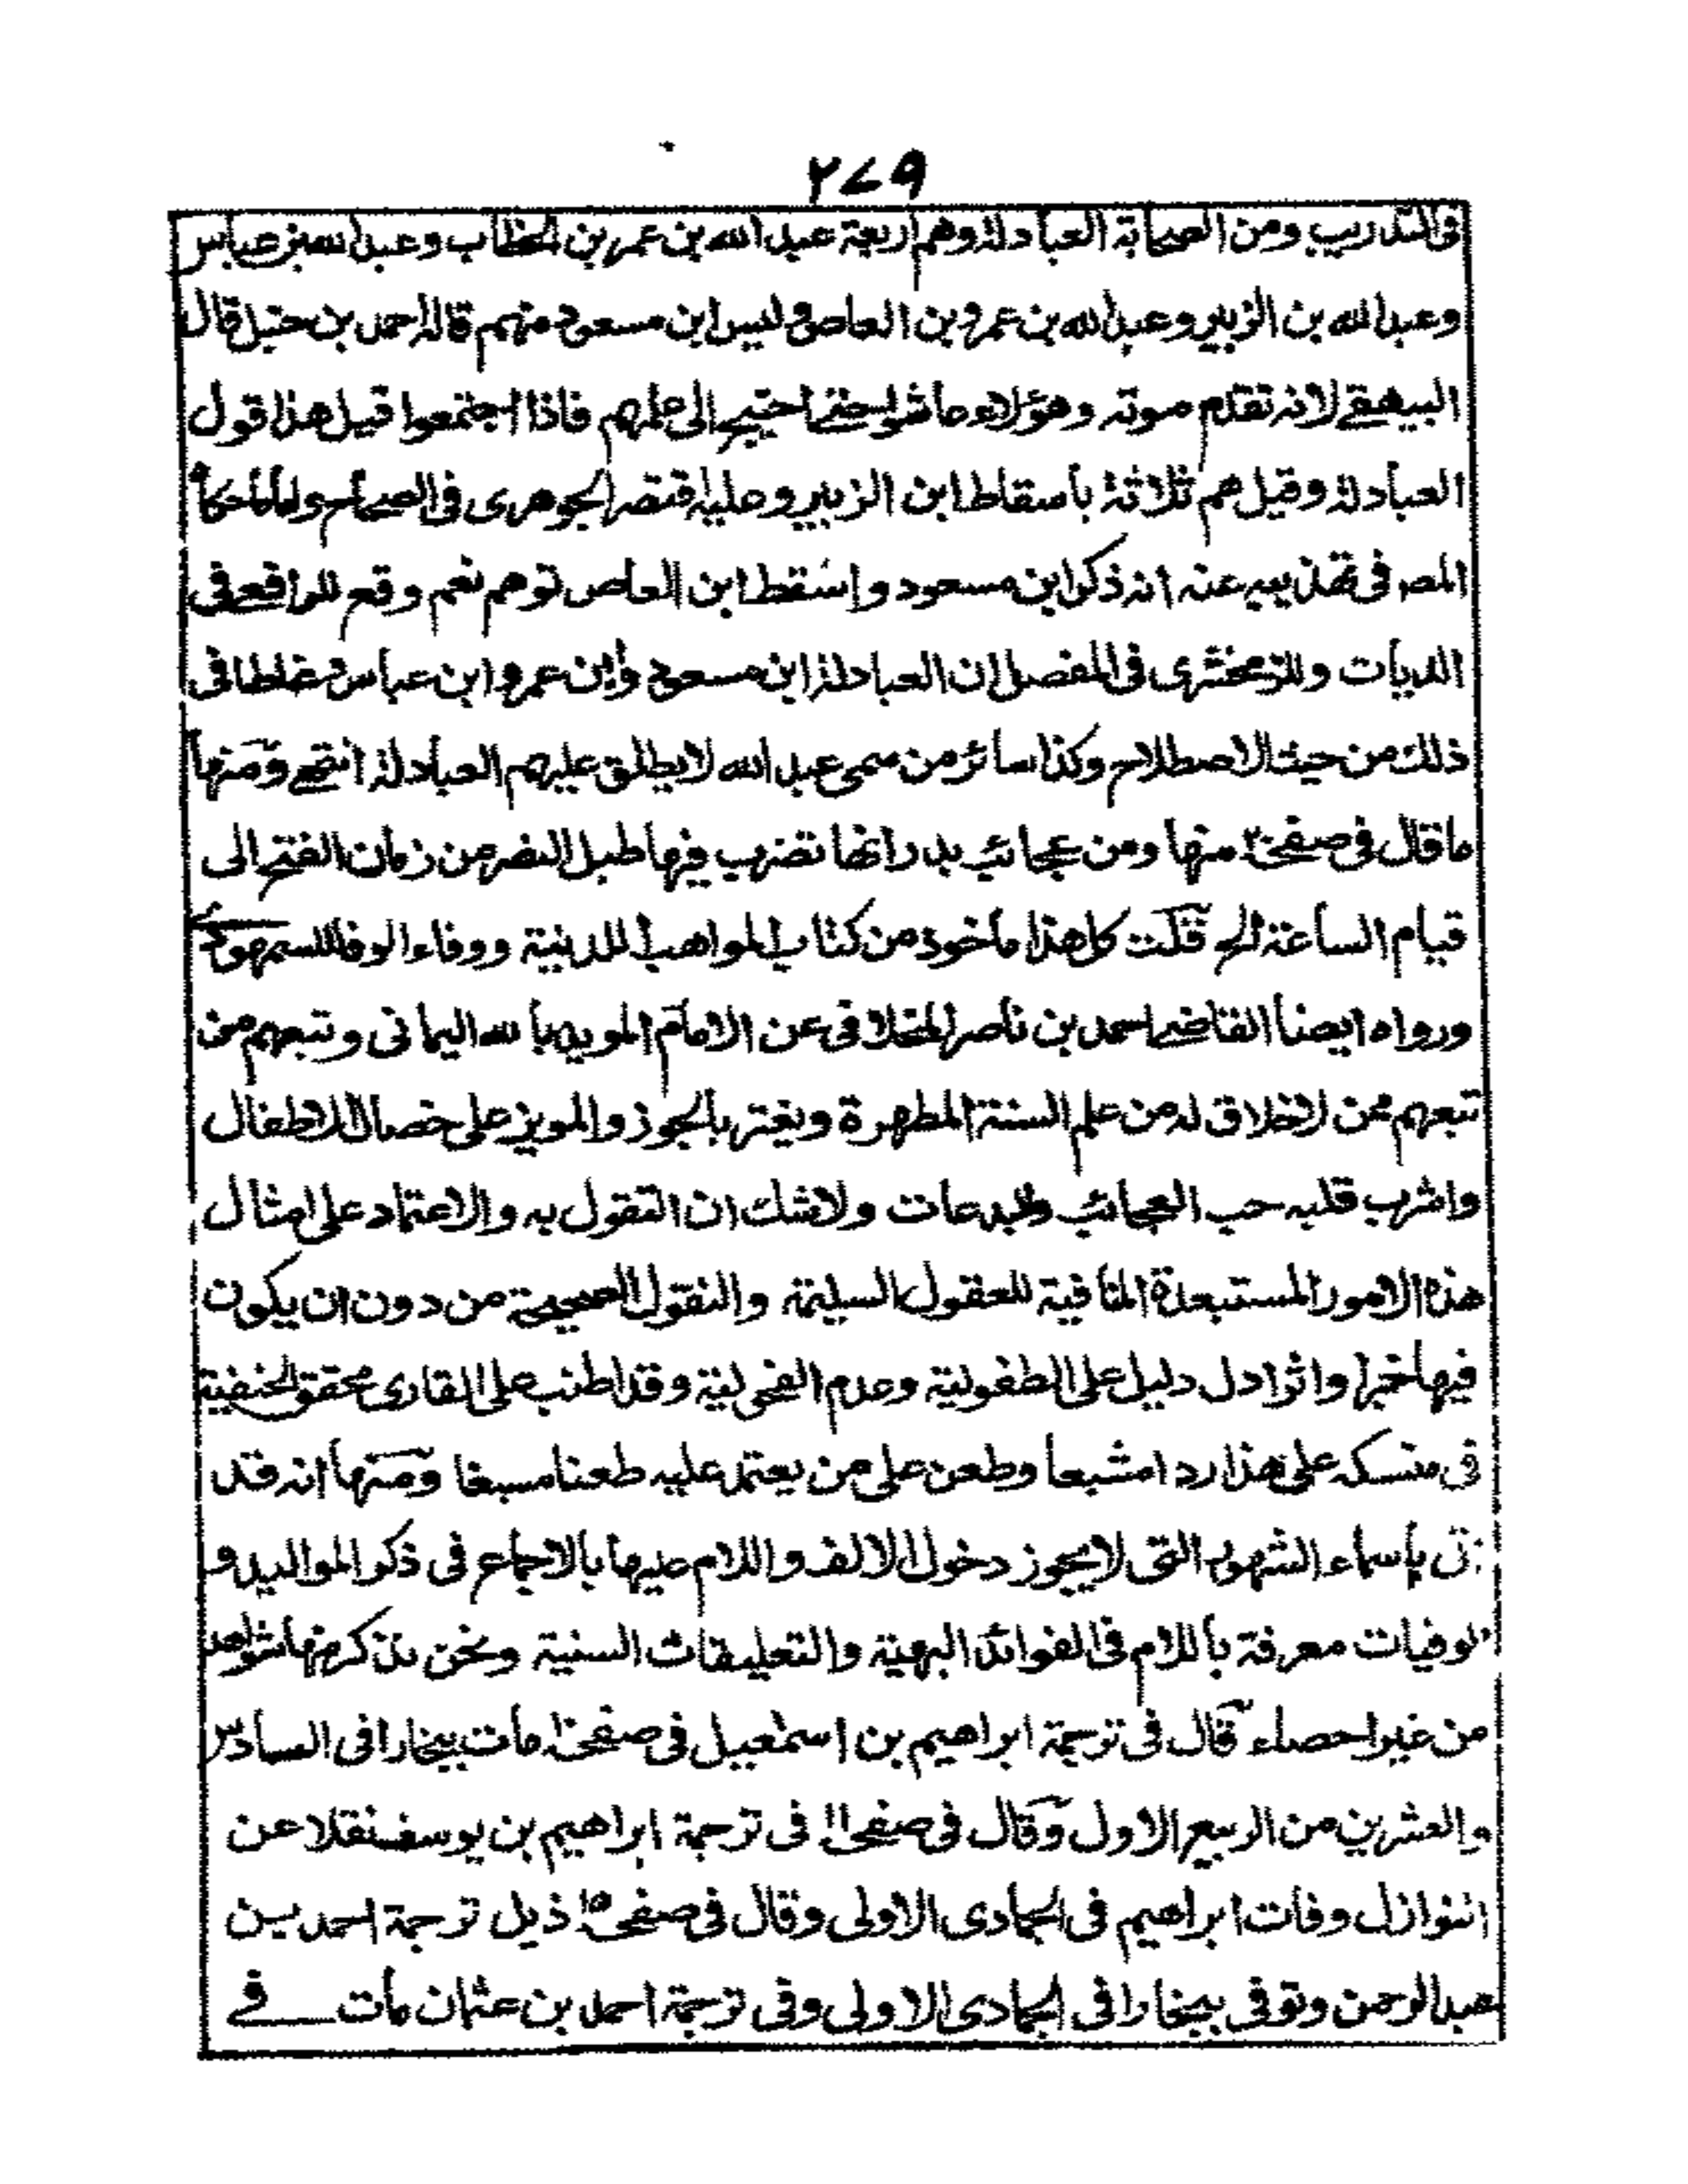 ٢٧٩
فى التدريب ومن الصحابة العبادلة وهم اربعة عبد الله بن عمر بن الخطاب وعبد الله بن عباس
وعبد الله بن الزبير وعبد الله بن عمرو بن العاص وليس ابن مسعود منهم قاله احمد بن حنبل قال
البيهقي لانه تقدم موته وهؤلاء عاشوا حتى احتيج الى علمهم فاذا اجتمعوا قيل هذا قول
العبادلة وقيل هم ثلاثة باسقاط ابن الزبير وعليه اقتصر الجوهرى فى الصحاح واما ما حكاه
المصر فى تهذيبه عنه انه ذكر ابن مسعود واسقط ابن العاص توهم نعم وقع للرافعى فى
الديات وللزمخشرى فى المفصل ان العبادلة ابن مسعود وابن عمر وابن عباس وغلطا فى
ذلك من حيث الاصطلاح وكذا سائر من سمى عبد الله لا يطلق عليهم العبادلة انتهى ومنها
ما قال فى صفحة ٢ منها ومن عجائب بدر انها تضرب فيها طبل النصر من زمان الفتح الى
قيام الساعة الخ قلت كل هذا ماخوذ من كتاب المواهب اللدينية ووفاء الوفا للسمهودى
ورواه ايضا القاضى احمد بن ناصر المخلافى عن الامام المويد بالله اليمانى وتبعهم من
تبعهم ممن لاخلاق له من علم السنة المطهرة ويغتر بالجوز والمويز على خصال الاطفال
واشرب قلبه حب العجائب والبدعات ولاشك ان التقول به والاعتماد على امثال
هذه الامور المستبعدة المنافية للعقول السليمة والنقول الصحيحة من دون ان يكون
فيها خبر او اثر ادل دليل على الطفولية وعدم الفحولية وقد اطنب على القارى محقق الحنفية
فى منسكه على هذا رد امشبعا وطعن على من يعتمد عليه طعنا مسبغا ومنها انه قد
تى باسماء الشهور التى لايجوز دخول الالف واللام عليها بالاجماع فى ذكر المواليد و
لوفيات معرفة باللام فى الفوائد البهية والتعليقات السنية ونحن نذكر منها شواهد
من غير احصاء قال فى ترجمة ابراهيم بن اسمعيل فى صفحة مات ببخارا فى السادس
والعشرين من الربيع الاول وقال فى صفحة ١١ فى ترجمة ابراهيم بن يوسف نقلا عن
النوازل وفات ابراهيم فى الجمادى الاولى وقال فى صفحة ١٥ ذيل ترجمة احمد بن
عبد الرحمن وتوفى ببخارا فى الجمادى الاولى وفى ترجمة احمد بن عثمان مات فى